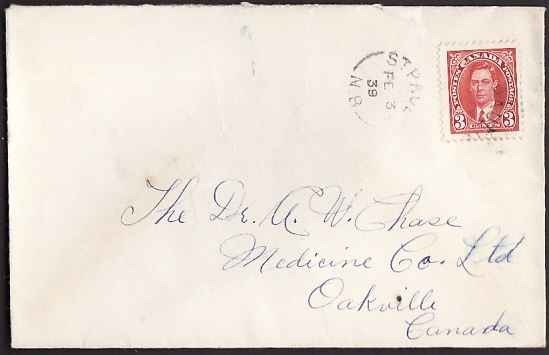 POSTES CANADA POSTAGE
3 CENTS 3
FE 3
39
N B
The Dr. A. W. Chase
Medicine Co. Ltd
Oakville
Canada